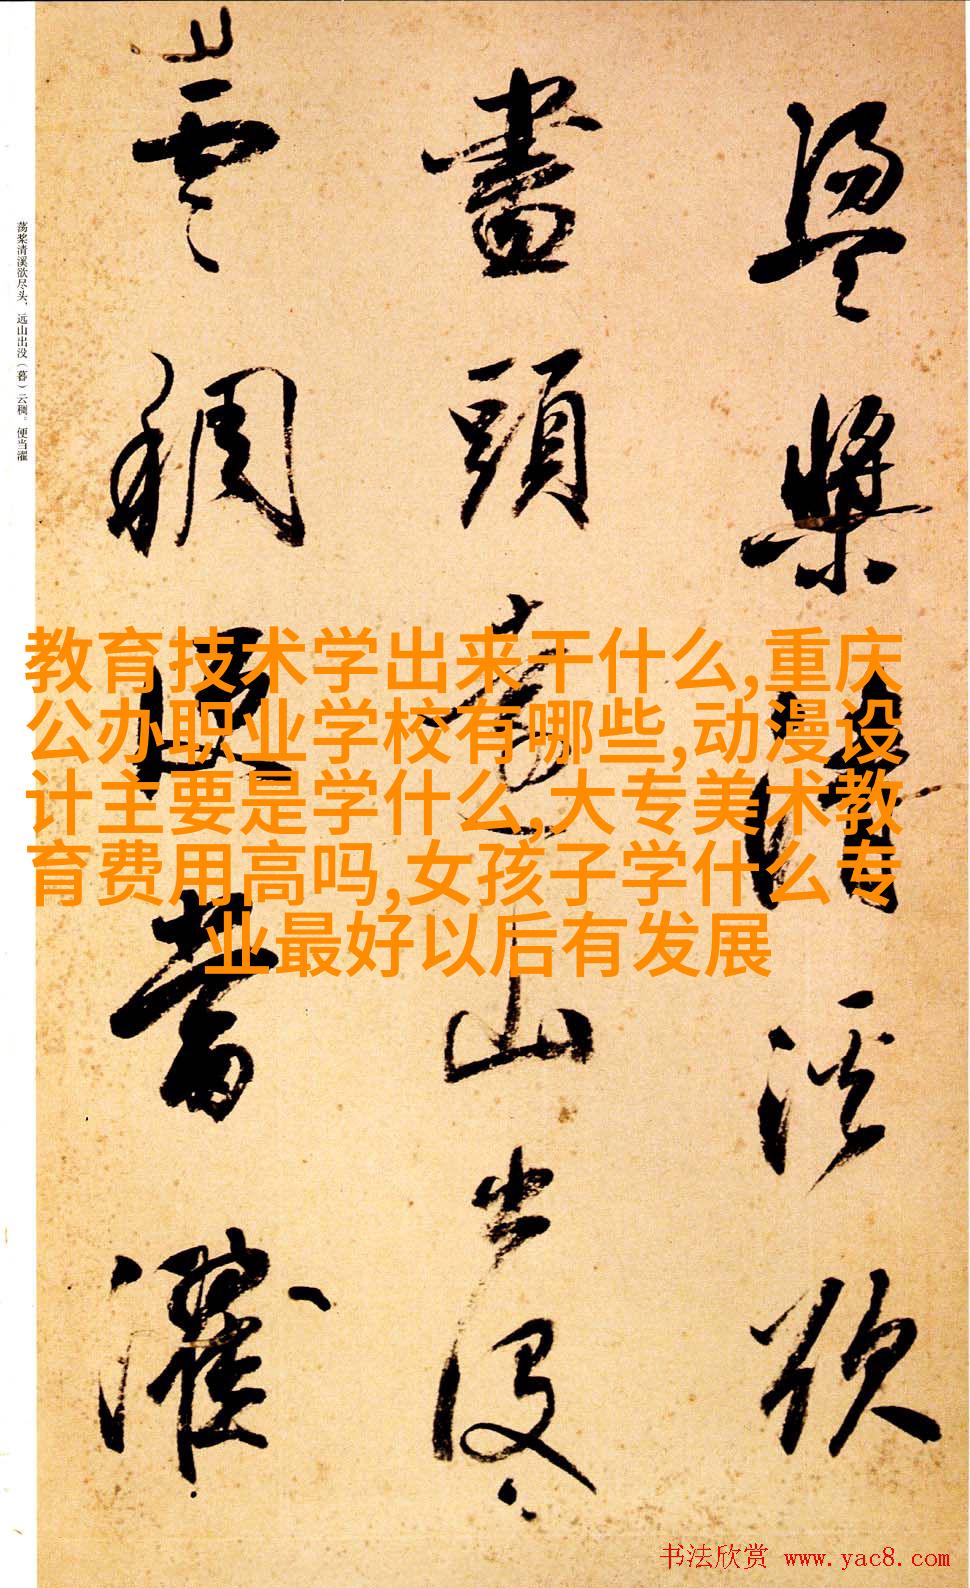 盪槳清溪欲
盡頭遠山出沒
雲稠便當濯
荡桨清溪欲尽头，远山出没（暮）云稠。便当濯
教育技术学出来干什么,重庆
公办职业学校有哪些,动漫设
计主要是学什么,大专美术教
育费用高吗,女孩子学什么专
业最好以后有发展
书法欣赏 www.yac8.com